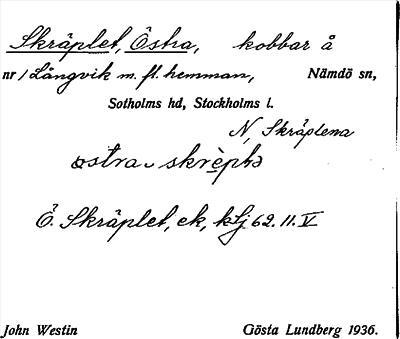 Skräplet, Östra, kobbar å
nr 1 Långvik m. fl. hemman, Nämdö sn,
Sotholms hd, Stockholms l.
N, Skräplena
östra skrè̱ptə
Ö. Skräplet, ek, kbj 62. 11. V
John Westin Gösta Lundberg 1936.